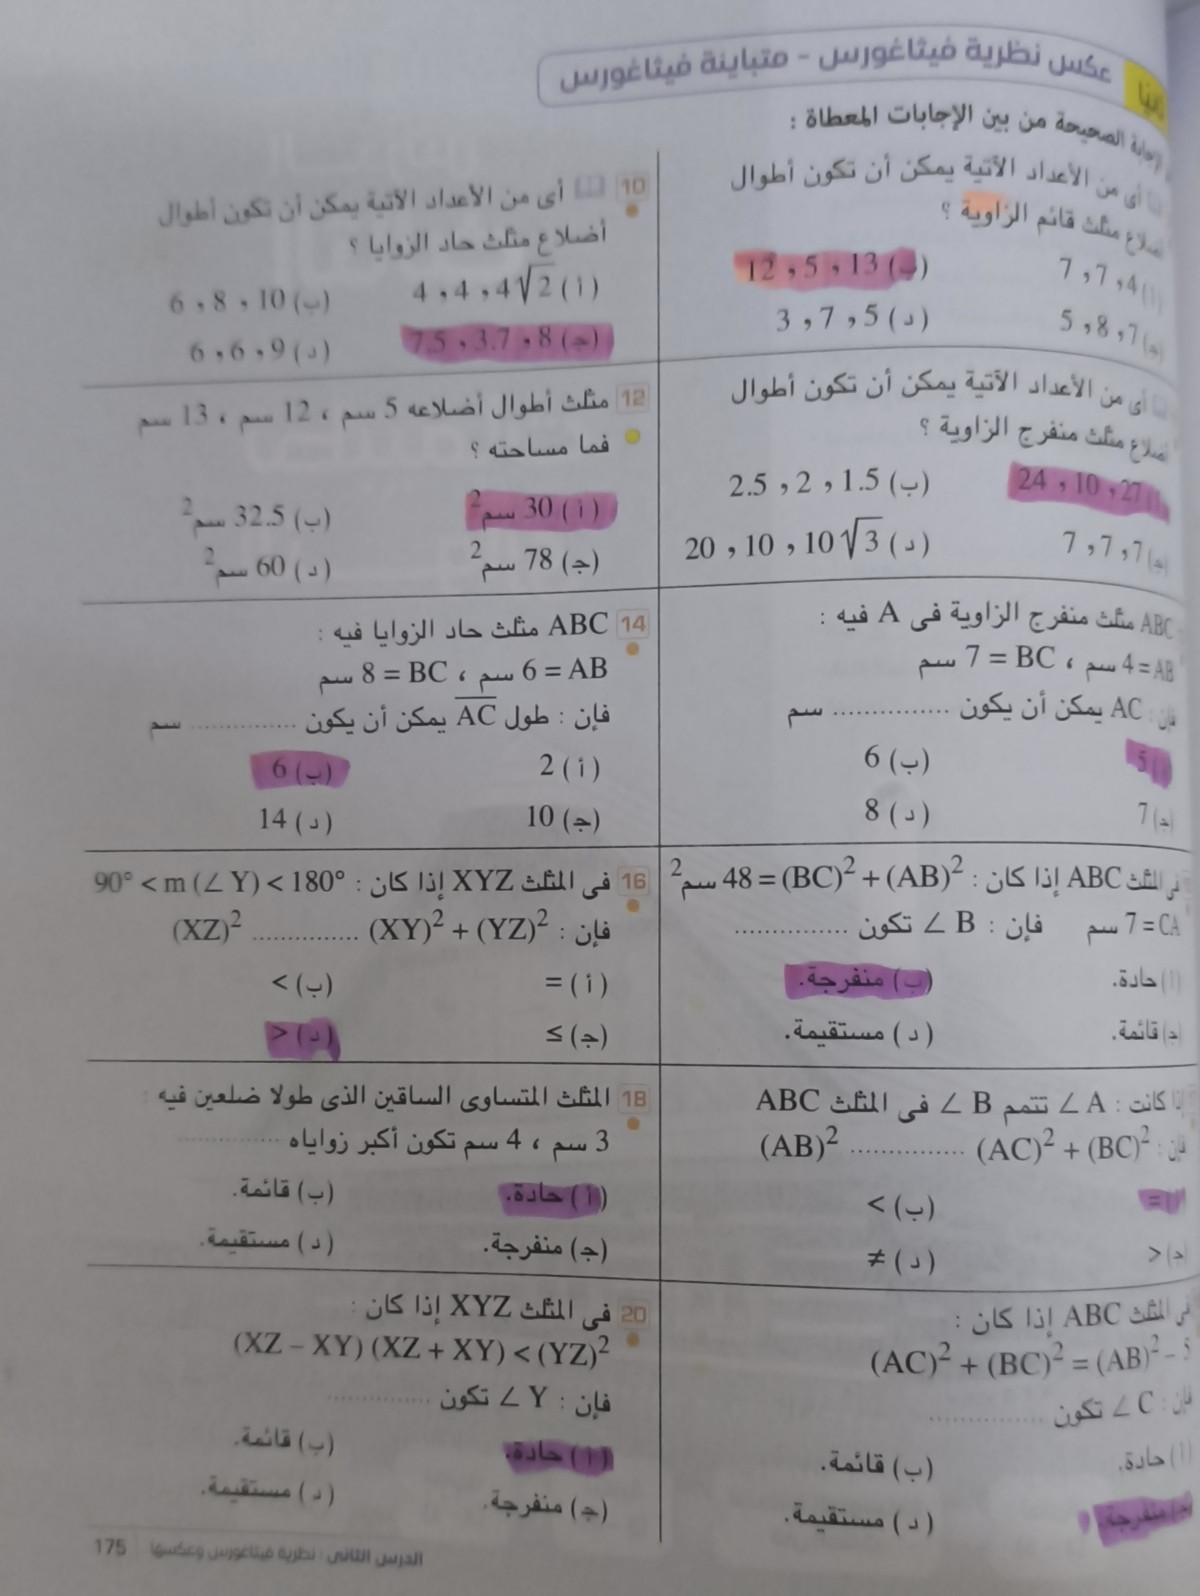 عكس نظرية فيثاغورس - متباينة فيثاغورس
الصحيحة من بين الإجابات المعطاة :
أى من الأعداد الآتية يمكن أن تكون أطوال
أضلاع مثلث قائم الزاوية ؟
(أ) 7 ، 7 ، 4
(ب) 12 ، 5 ، 13
(ج) 5 ، 8 ، 7
(د) 3 ، 7 ، 5
10 أى من الأعداد الآتية يمكن أن تكون أطوال
أضلاع مثلث حاد الزوايا ؟
(أ) 4 ، 4 ، 4√2
(ب) 6 ، 8 ، 10
(ج) 7.5 ، 3.7 ، 8
(د) 6 ، 6 ، 9
أى من الأعداد الآتية يمكن أن تكون أطوال
أضلاع مثلث منفرج الزاوية ؟
24 ، 10 ، 27
(ب) 2.5 ، 2 ، 1.5
(ج) 7 ، 7 ، 7
(د) 20 ، 10 ، 10√3
12 مثلث أطوال أضلاعه 5 سم ، 12 سم ، 13 سم
فما مساحته ؟
(أ) 30 سم²
(ب) 32.5 سم²
(ج) 78 سم²
(د) 60 سم²
ABC مثلث منفرج الزاوية فى A فيه :
AB = 4 سم ، BC = 7 سم
فإن : AC يمكن أن يكون .............. سم
5
(ب) 6
(ج) 7
(د) 8
14 ABC مثلث حاد الزوايا فيه :
AB = 6 سم ، BC = 8 سم
فإن : طول A͞C͞ يمكن أن يكون .............. سم
(أ) 2
(ب) 6
(ج) 10
(د) 14
فى المثلث ABC إذا كان : (AB)² + (BC)² = 48 سم²
CA = 7 سم فإن : ∠ B تكون ..............
(أ) حادة.
(ب) منفرجة.
(ج) قائمة.
(د) مستقيمة.
16 فى المثلث XYZ إذا كان : 90° < m (∠ Y) < 180°
فإن : (XY)² + (YZ)² .............. (XZ)²
(أ) =
(ب) >
(ج) ≥
(د) <
إذا كانت : ∠ A تتمم ∠ B فى المثلث ABC
فإن : (AC)² + (BC)² .............. (AB)²
(أ) =
(ب) >
(ج) <
(د) ≠
18 المثلث المتساوى الساقين الذى طولا ضلعين فيه :
3 سم ، 4 سم تكون أكبر زواياه ..............
(أ) حادة.
(ب) قائمة.
(ج) منفرجة.
(د) مستقيمة.
فى المثلث ABC إذا كان :
(AC)² + (BC)² = (AB)² – 5
فإن : ∠ C تكون ..............
(أ) حادة.
(ب) قائمة.
(ج) منفرجة.
(د) مستقيمة.
20 فى المثلث XYZ إذا كان :
(XZ – XY) (XZ + XY) < (YZ)²
فإن : ∠ Y تكون ..............
(أ) حادة.
(ب) قائمة.
(ج) منفرجة.
(د) مستقيمة.
الدرس الثانى : نظرية فيثاغورس وعكسها 175